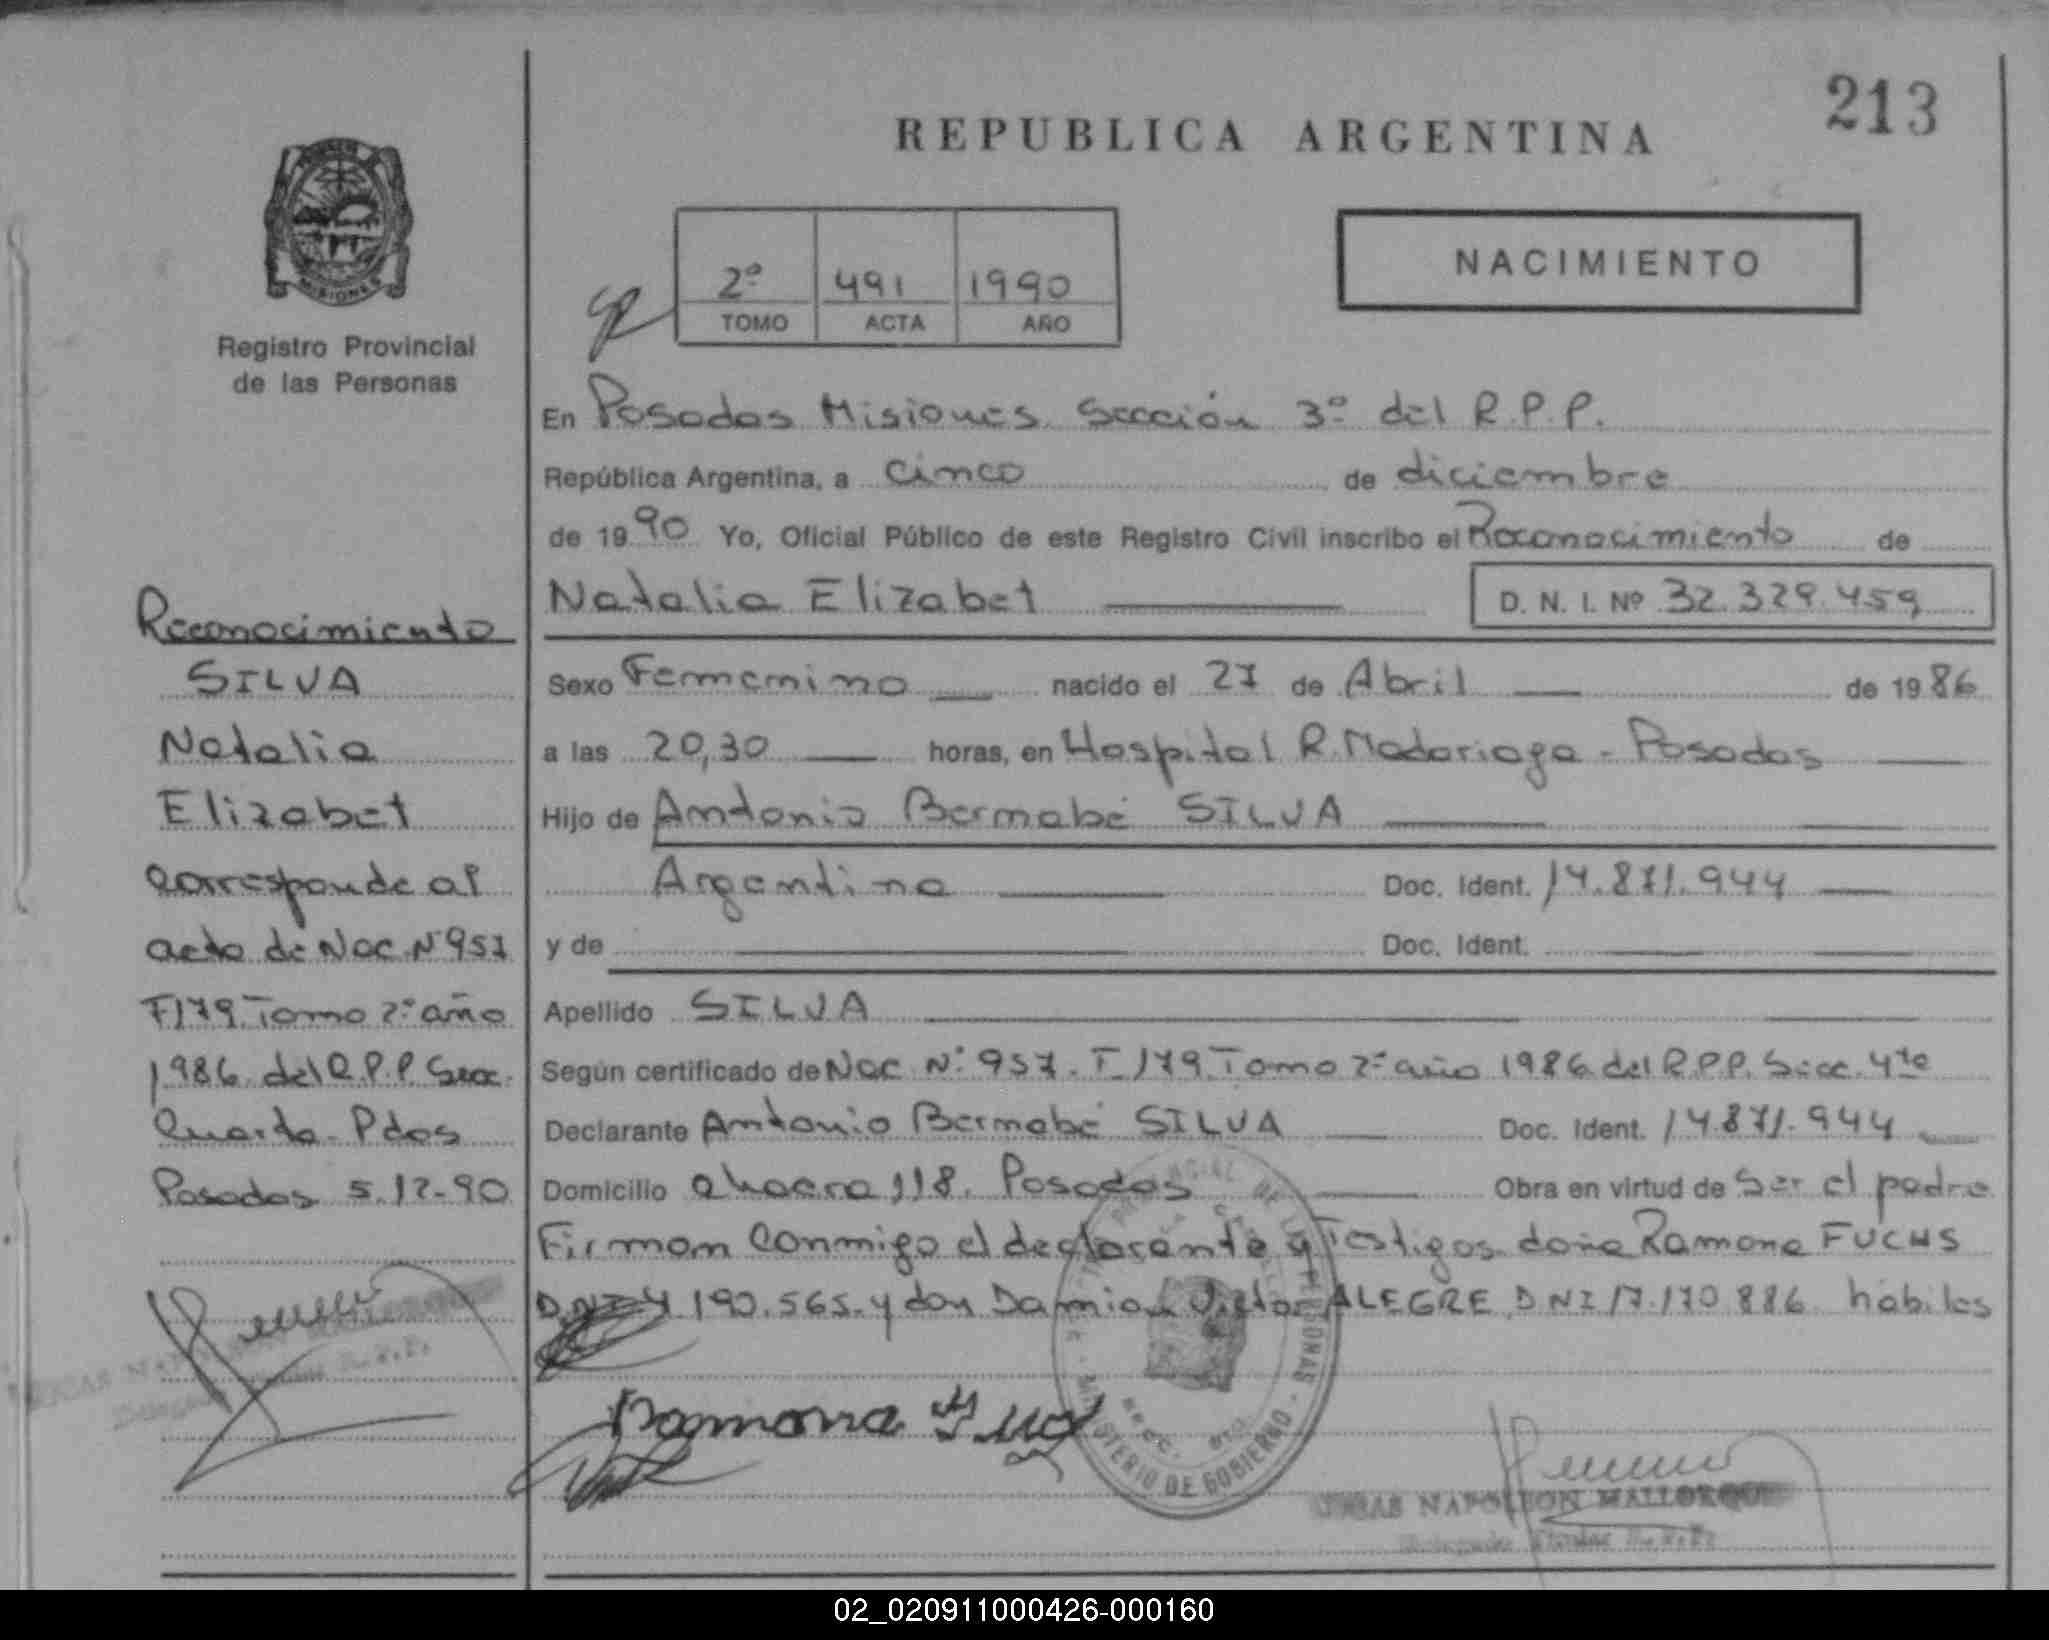 213
REPUBLICA ARGENTINA
NACIMIENTO
2º 491 1990
TOMO ACTA AÑO
MISIONES
Registro Provincial
de las Personas
En Posadas Misiones Sección 3º del R.P.P.
República Argentina, a cinco de diciembre
de 1990 Yo, Oficial Público de este Registro Civil inscribo el Reconocimiento de
Natalia Elizabet D. N. I. Nº 32.329.459
Sexo Femenino nacido el 27 de Abril de 1986
a las 20,30 horas, en Hospital R. Madariaga - Posadas
Hijo de Antonio Bernabé SILVA
Argentina Doc. Ident. 14.871.944
y de Doc. Ident.
Apellido SILVA
Según certificado de Nac. Nº 957. F 179 Tomo 2º año 1986 del R.P.P. Secc. 4ta
Declarante Antonio Bernabé SILVA Doc. Ident. 14871.944
Domicilio chacra 118. Posadas Obra en virtud de Ser el padre
Firman conmigo el declarante y Testigos doña Ramona FUCHS
D.N.I 4 190.565 y don Damian Victor ALEGRE DNI 17.170 886 habiles
Reconocimiento
SILVA
Natalia
Elizabet
corresponde al
acta de Nac. Nº 957
F179 Tomo 2º año
1986 del R.P.P. Secc.
Cuarta - Pdas
Posadas 5.12-90
Ramona
MINISTERIO DE GOBIERNO
DE LAS PERSONAS
NAPOLEON MALLORQUIN
02_020911000426-000160